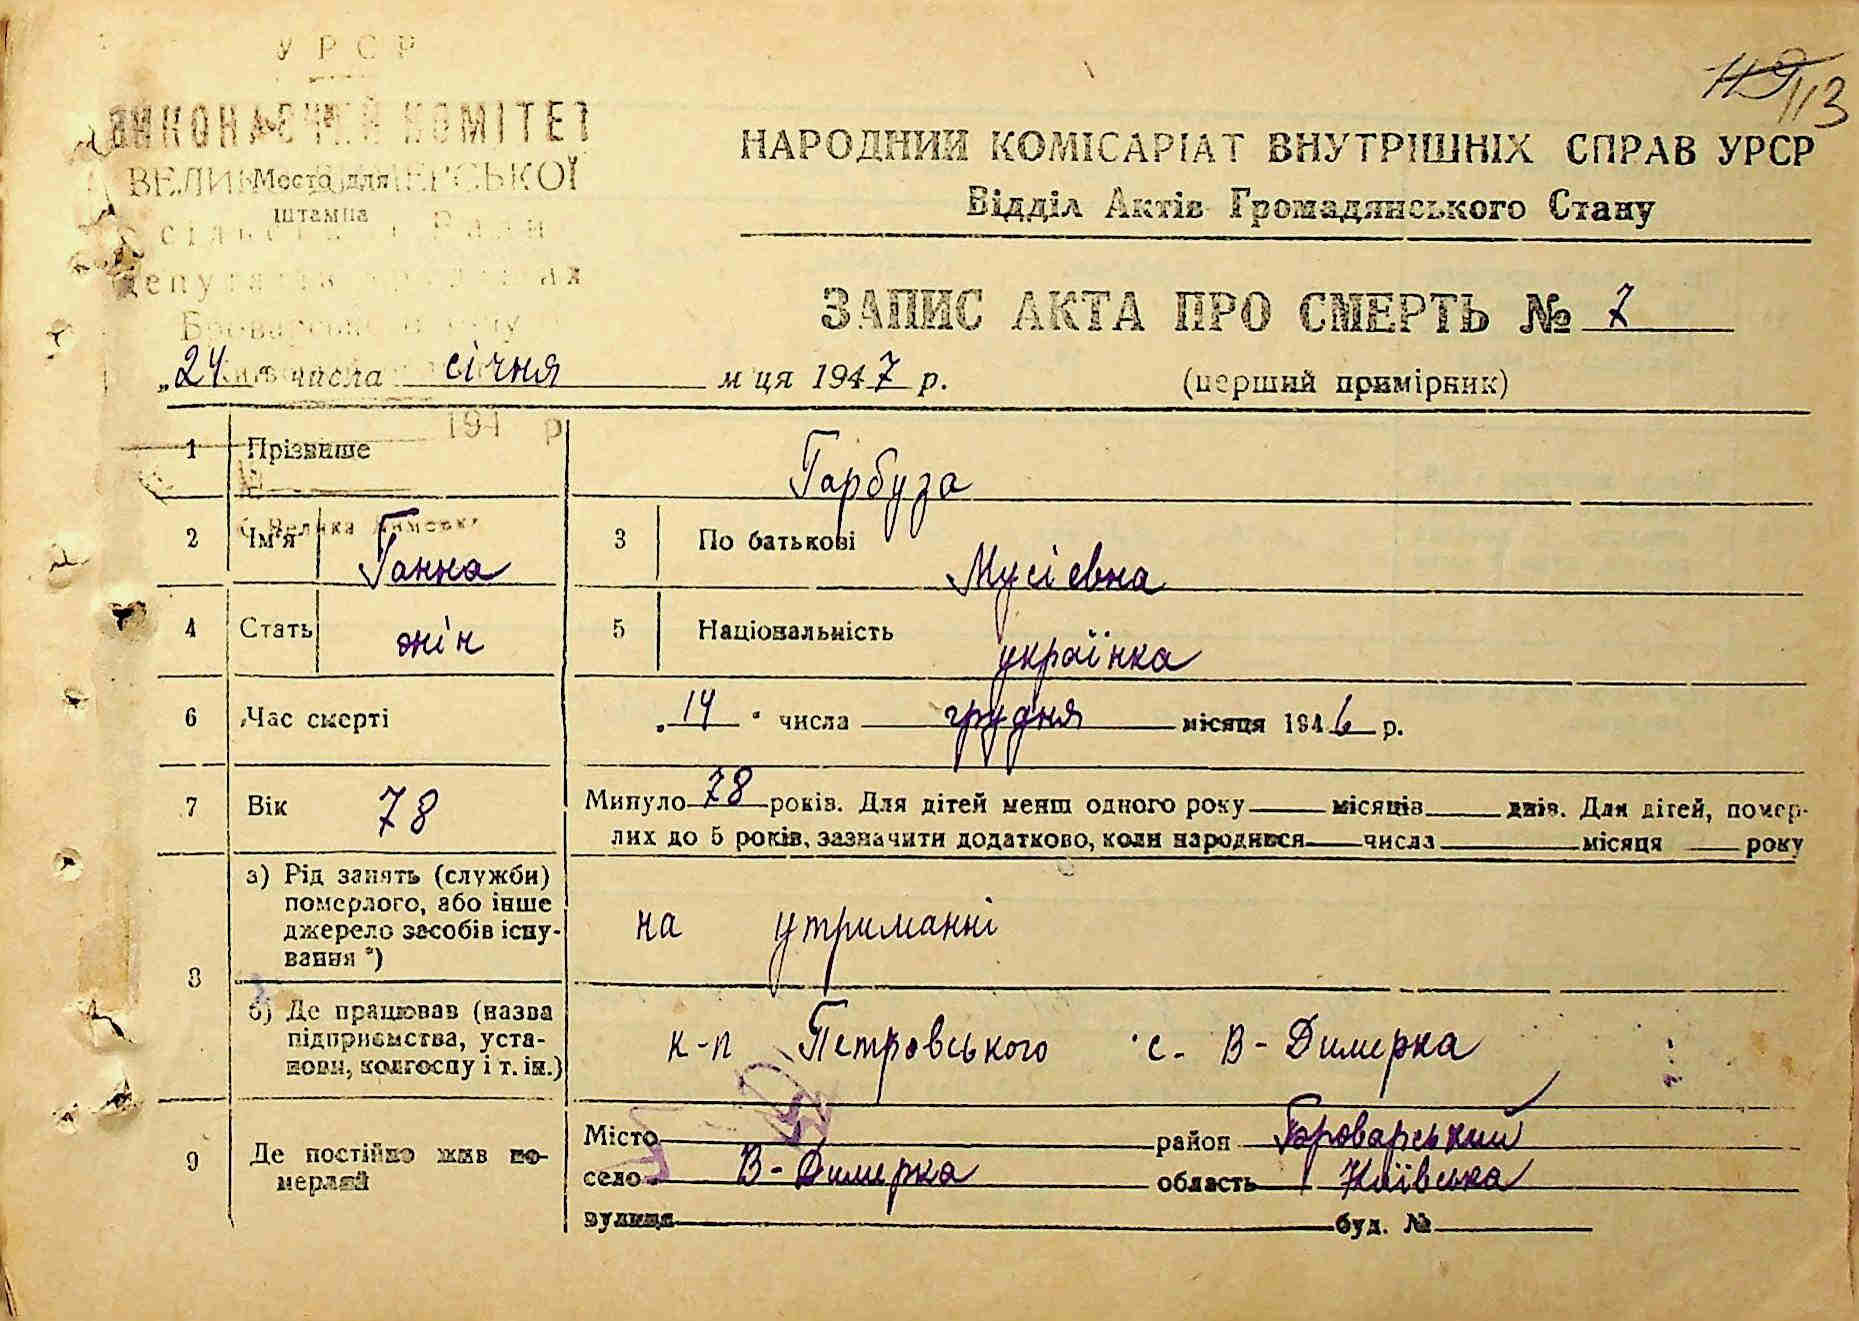 УРСР
ВИКОНАВЧИЙ КОМІТЕТ
113
НАРОДНИЙ КОМІСАРІАТ ВНУТРІШНІХ СПРАВ УРСР
Место для
штампа
Відділ Актів Громадянського Стану
ЗАПИС АКТА ПРО СМЕРТЬ № 7
„24“ числа січня м'ця 1947 р. (перший примірник)
194 р
1 Прізвище Гарбуза
с. Велика Димерка
2 Ім'я Ганна 3 По батькові Мусіевна
4 Стать жін 5 Національність українка
6 Час смерті „14“ числа грудня місяця 1946 р.
7 Вік 78 Минуло 78 років. Для дітей менш одного року місяців днів. Для дітей, помер-
лих до 5 років, зазначити додатково, коли народився числа місяця року
8 а) Рід занять (служби)
померлого, або інше
джерело засобів існу-
вання *) на утриманні
б) Де працював (назва
підприємства, уста-
нови, колгоспу і т. ін.) к-п Петровського с. В-Димерка
9 Де постійно жив по-
мерлий
Місто район Броварський
село В-Димерка область Київська
вулиця буд. №